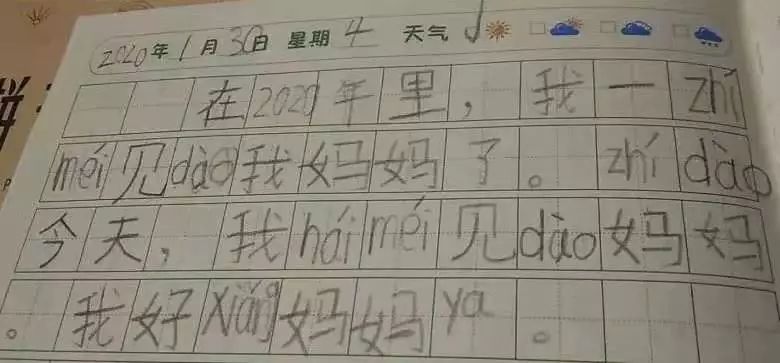 2020年1月30日 星期4 天气
在2020年里，我一zhí
méi见dào我妈妈了。zhí dào
今天，我hái méi见dào妈妈
。我好xiǎng妈妈ya。